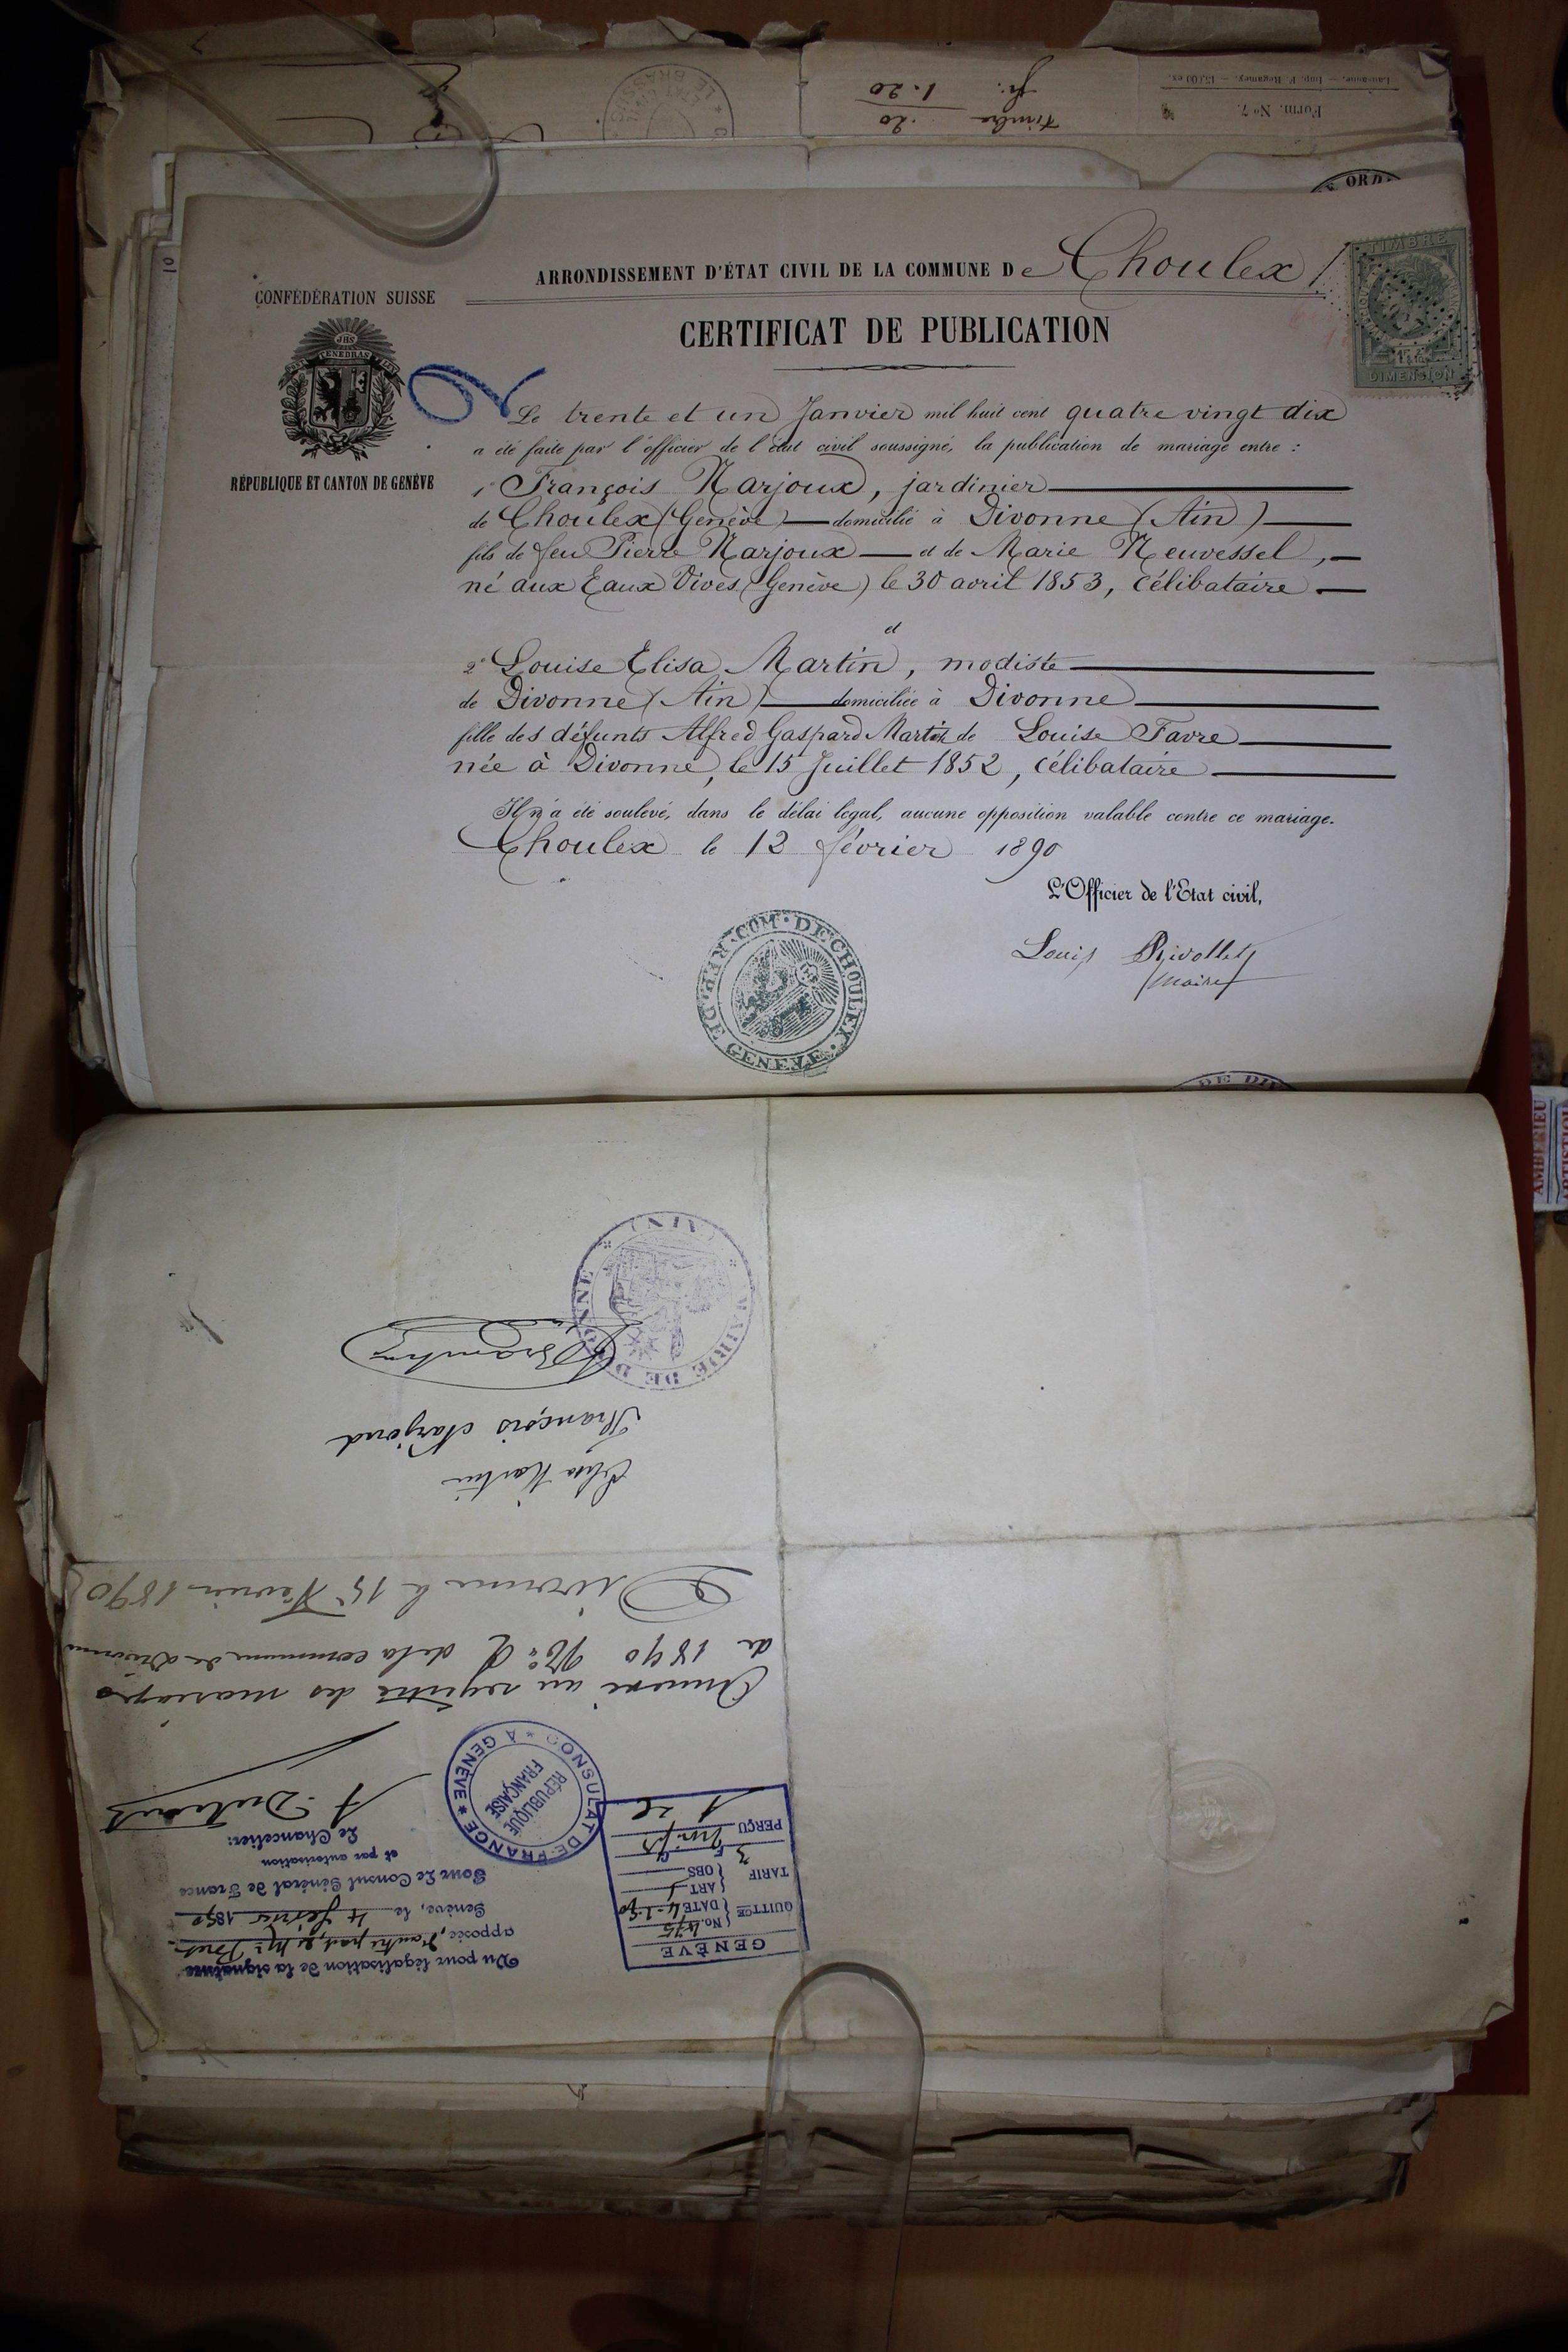 Form. No 7.
Lausanne. — Imp. F. Regamey. — 15,000 ex.
timbre .20
fr. 1.20
LE BRASSUS
ARRONDISSEMENT D'ÉTAT CIVIL DE LA COMMUNE De Choulex
TIMBRE
DIMENSION
CONFÉDÉRATION SUISSE
JHS
TENEBRAS
RÉPUBLIQUE ET CANTON DE GENÈVE
CERTIFICAT DE PUBLICATION
Le trente et un Janvier mil huit cent quatre vingt dix
a été faite par l'officier de l'état civil soussigné, la publication de mariage entre :
1° François Narjoux, jardinier
de Choulex (Genève) domicilié à Divonne (Ain)
fils de feu Pierre Narjoux et de Marie Neuvessel,
né aux Eaux Vives (Genève) le 30 avril 1853, célibataire
et
2° Louise Elisa Martin, modiste
de Divonne (Ain) domiciliée à Divonne
fille des défunts Alfred Gaspard Martin de Louise Favre
née à Divonne, le 15 Juillet 1852, célibataire
Il n'a été soulevé, dans le délai légal, aucune opposition valable contre ce mariage.
Choulex le 12 février 1890
L'Officier de l'Etat civil,
Louis Rivollet
maire
REP. DE GENEVE COM. DE CHOULEX
DE DIV
AMBERIEU
GENÈVE
QUITTCE No. 475
DATE 4-2-90
TARIF ART
OBS
PERÇU
Vu pour légalisation de la signature
apposée, d'autre part, de Mr
Genève, le 4 février 1890
Pour Le Consul Général de France
et par autorisation
Le Chancelier:
CONSULAT DE FRANCE À GENÈVE
RÉPUBLIQUE FRANÇAISE
Annexé au registre des mariages
de 1890 No 2 de la commune de Divonne
Divonne le 15 Février 1890
Elisa Martin
François Narjoud
MAIRIE DE DIVONNE (AIN)